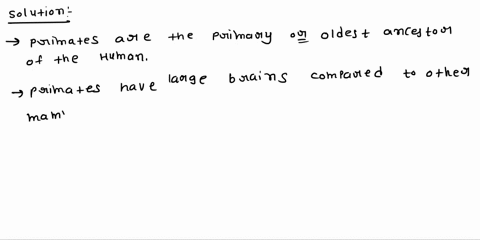 Solution:-
→ Primates are the primary or oldest ancestor
of the Human.
→ Primates have large brains compared to other
mam